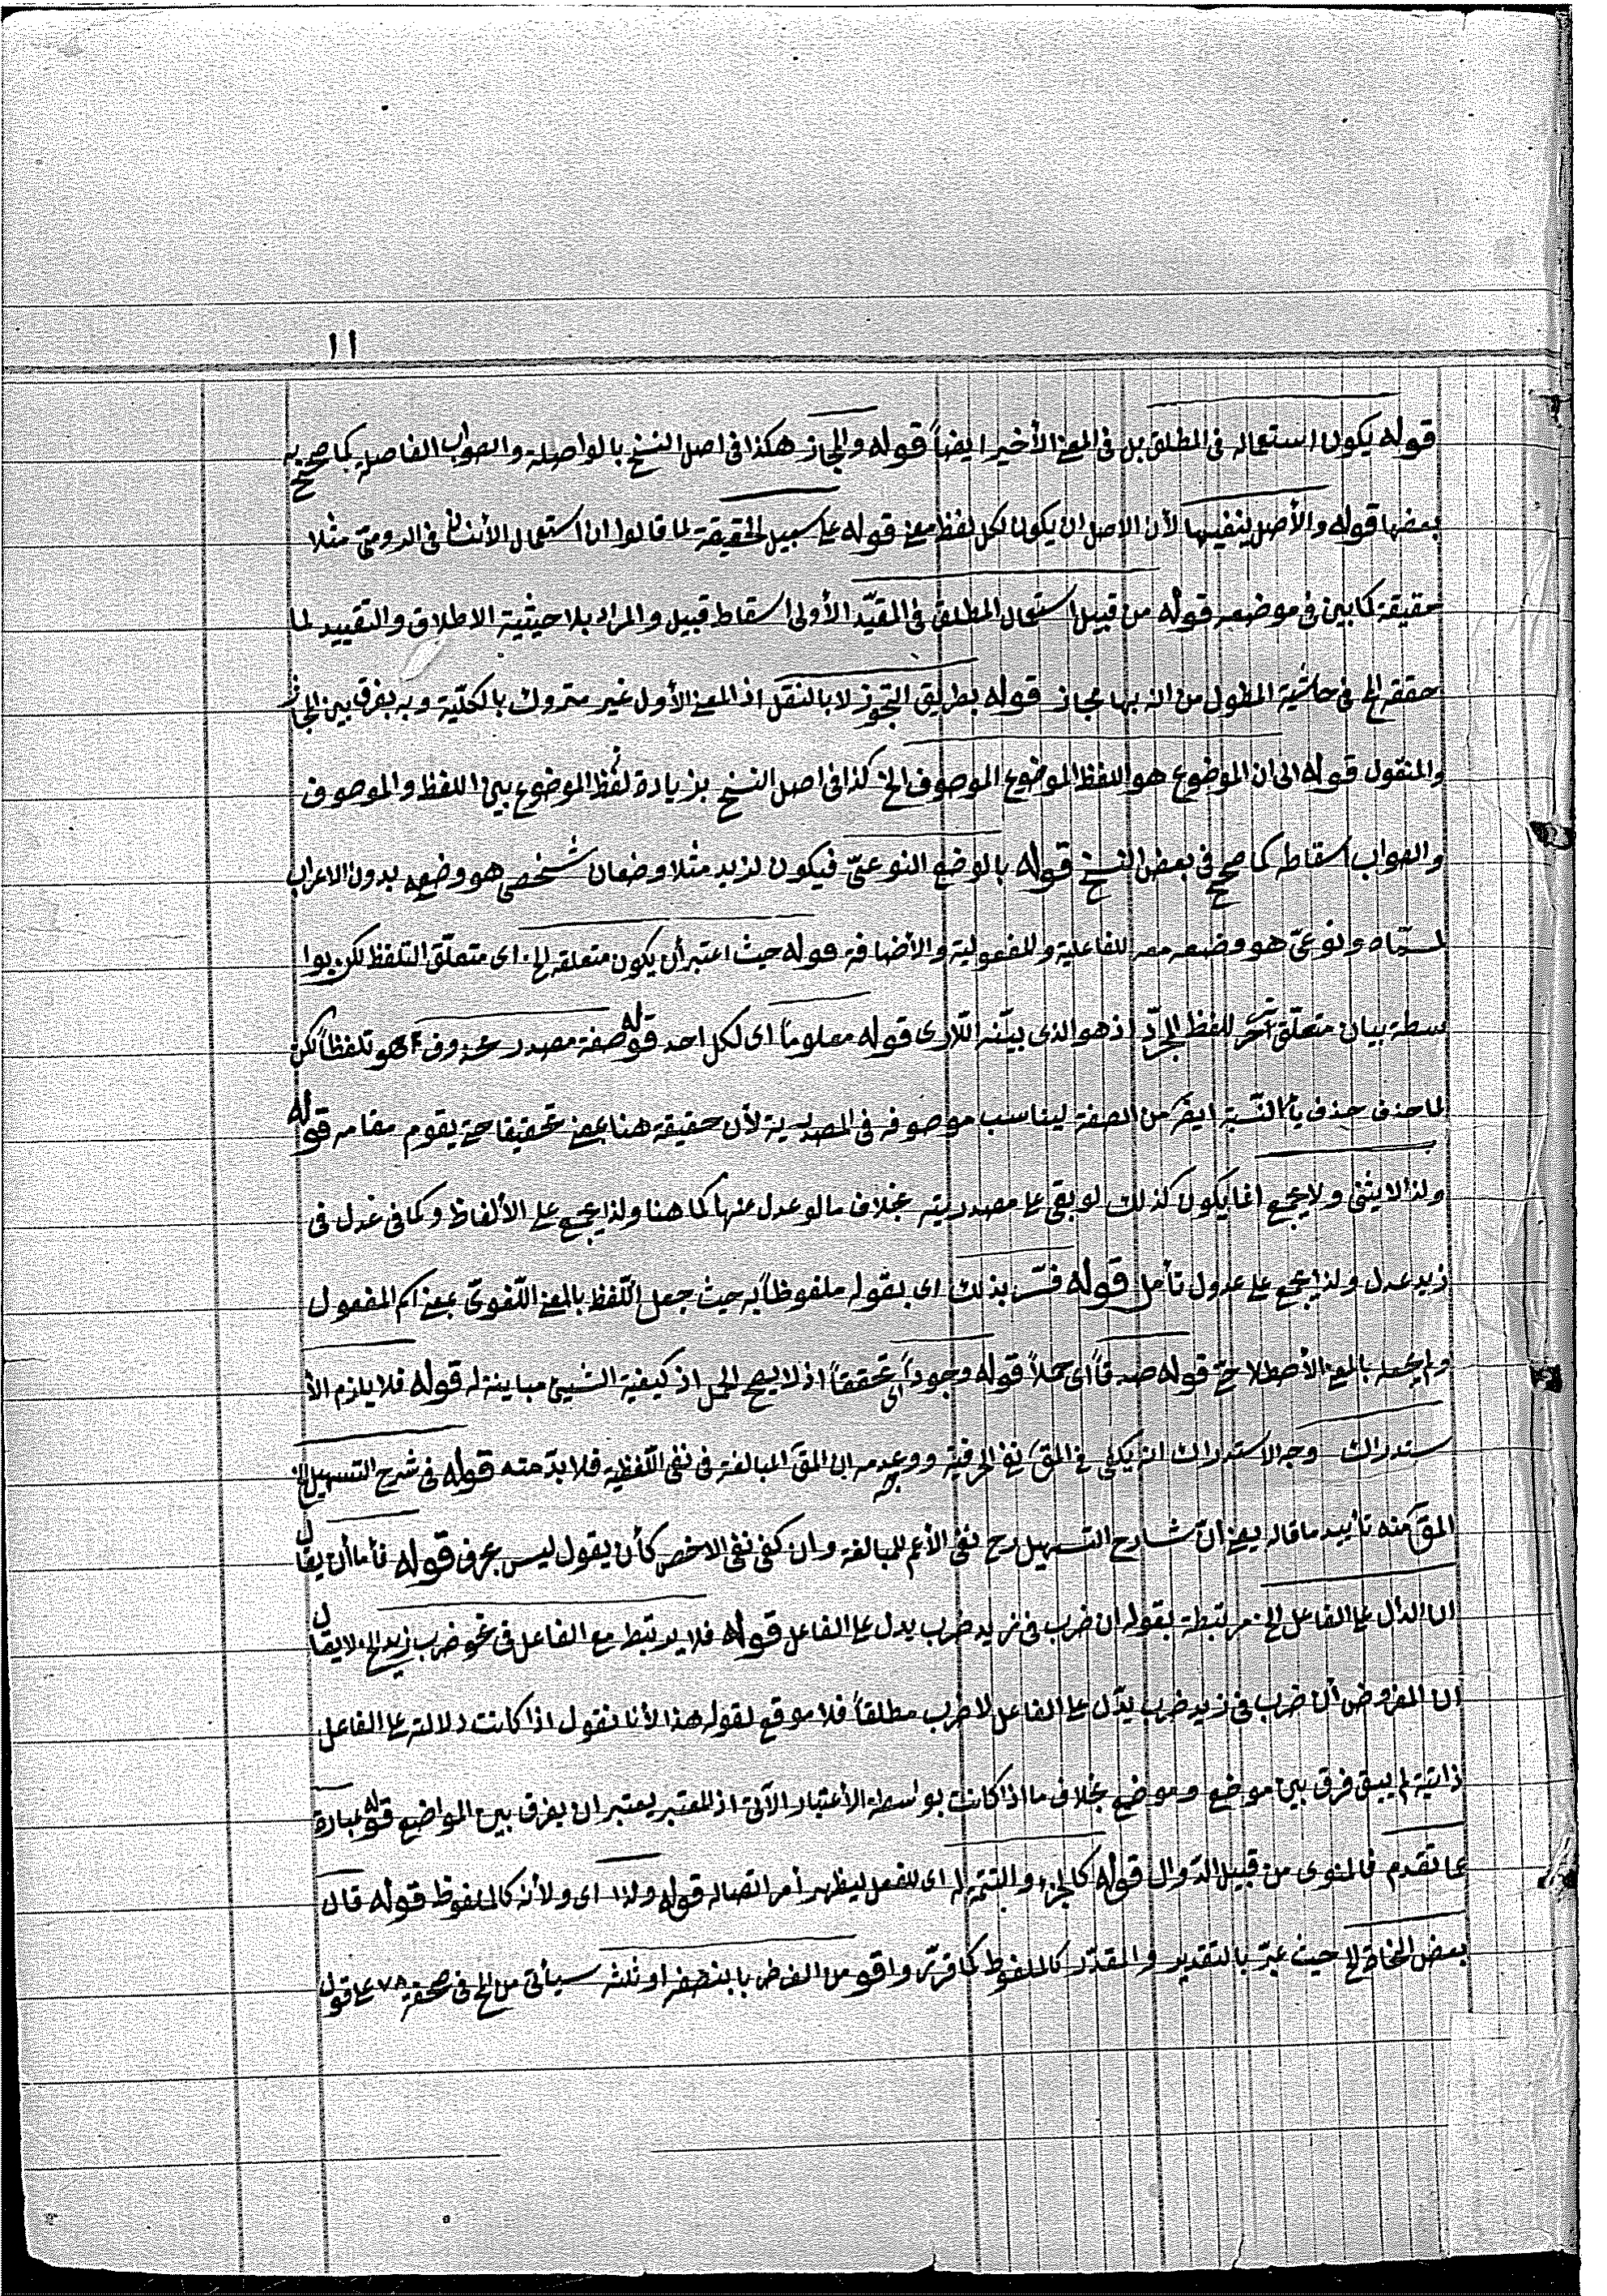 ١١
قوله يكون استعماله فى المطلق بل فى المعنى الأخير ايضاً قوله والمجاز هكذا فى اصل النسخ بالواصلة والصواب الفاصل كما صحح به
بعضها قوله والأصل ينفيها لأن الاصل ان يكون لكل لفظ معنى قوله على سبيل الحقيقة لما قالوا ان استعمال الأنسان فى الرومىّ مثلا
حقيقة كما بين فى موضعه قوله من قبيل استعمال المطلق فى المقيّد الأولى اسقاط قبيل والمراد بلا حيثية الاطلاق والتقييد لما
حققه الخ فى حاشية المطول من انه بها مجاز قوله بطريق التجوز لا بالنقل اذ المعنى الأول غير متروك بالكلّية وبه يفرق بين المجاز
والمنقول قوله الى ان الموضوع هو اللفظ الموضوع الموصوف الخ كذا فى اصل النسخ بزيادة لفظ الموضوع بين اللفظ والموصوف
والصواب اسقاطه كما صحح فى بعض النسخ قوله بالوضع النوعىّ فيكون لزيد مثلا وضعان شخصى هو وضعه بدون الاعراب
لمسمّاه ونوعىّ هو وضعه معه للفاعلية وللمفعولية والأضافة قوله حيث اعتبر أن يكون متعلقه الخ اى متعلّق التلفظ لكن بوا
سطة بيان متعلّق آخر للفظ المجرّد اذ هو الذى بيّنه اللارى قوله معلوماً اى لكل احد قوله صفة مصدر محذوف هو تلفظاً لكن
لما حذف حذف ياء النّسبة ايضً من الصفة ليناسب موصوفه فى المصدرية لأن حقيقة هنا بمعنى تحقيقا حتى يقوم مقامه قوله
ولذا لا يثنى ولا يجمع انما يكون كذلك لو بقى على مصدريته بخلاف ما لو عدل عنها كما هنا ولذا يجمع على الألفاظ وكما فى عدل فى
زيد عدل ولذا يجمع على عدول تأمل قوله فسّر بذلك اى بقوله ملفوظاً به حيث جعل اللّفظ بالمعنى اللّغوىّ بمعنى اسم المفعول
ولم يجعله بالمعنى الأصطلاحى قوله صدقاً اى حملاً قوله وجوداً اى تحققاً اذ لا يصح الحمل اذ كيفية الشيئ مباينة له قوله فلا يلزم الأ
ستدراك وجه الاستدراك انه يكفى فى المقَ نفى الحرفية ووجه عدمه ان المقَ المبالغة فى نفى اللّفظية فلا بدّ منه قوله فى شرح التسهيل الخ
المقَ منه تأييد ما قاله يعنى انّ شارح التسهيل رجح نفى الأعم للمبالغة وان كفى نفى الاخص كأن يقول ليس بحرف قوله فأما أن يقال
ان الدال على الفاعل الخ مرتبطة بقوله ان ضرب فى زيد ضرب يدل على الفاعل قوله فلا يرتبط مع الفاعل فى نحو ضرب زيد الخ لا يقال
ان المفروض أن ضرب فى زيد ضرب يدّل على الفاعل لا ضرب مطلقاً فلا موقع لقوله هذا لأنا نقول اذا كانت دلالته على الفاعل
ذاتية لم يبق فرق بين موضع وموضع بخلاف ما اذا كانت بواسطة الأعتبار الآتى اذ المعتبر يعتبر ان يفرق بين المواضع قوله عبارة
عما تقدم فالمنوى من قبيل الدّوال قوله كالجزء والتتمة له اى للفعل ليظهر أمر اتصاله قوله ولذا اى ولأنه كالملفوظ قوله قال
بعض النحاة الخ حيث عبّر بالتقدير والمقدّر كالملفوظ كما قرّر واقوى من الفرض بالنصف او ثلثه سيأتى من الخ فى صحفة ٧٨ على قول